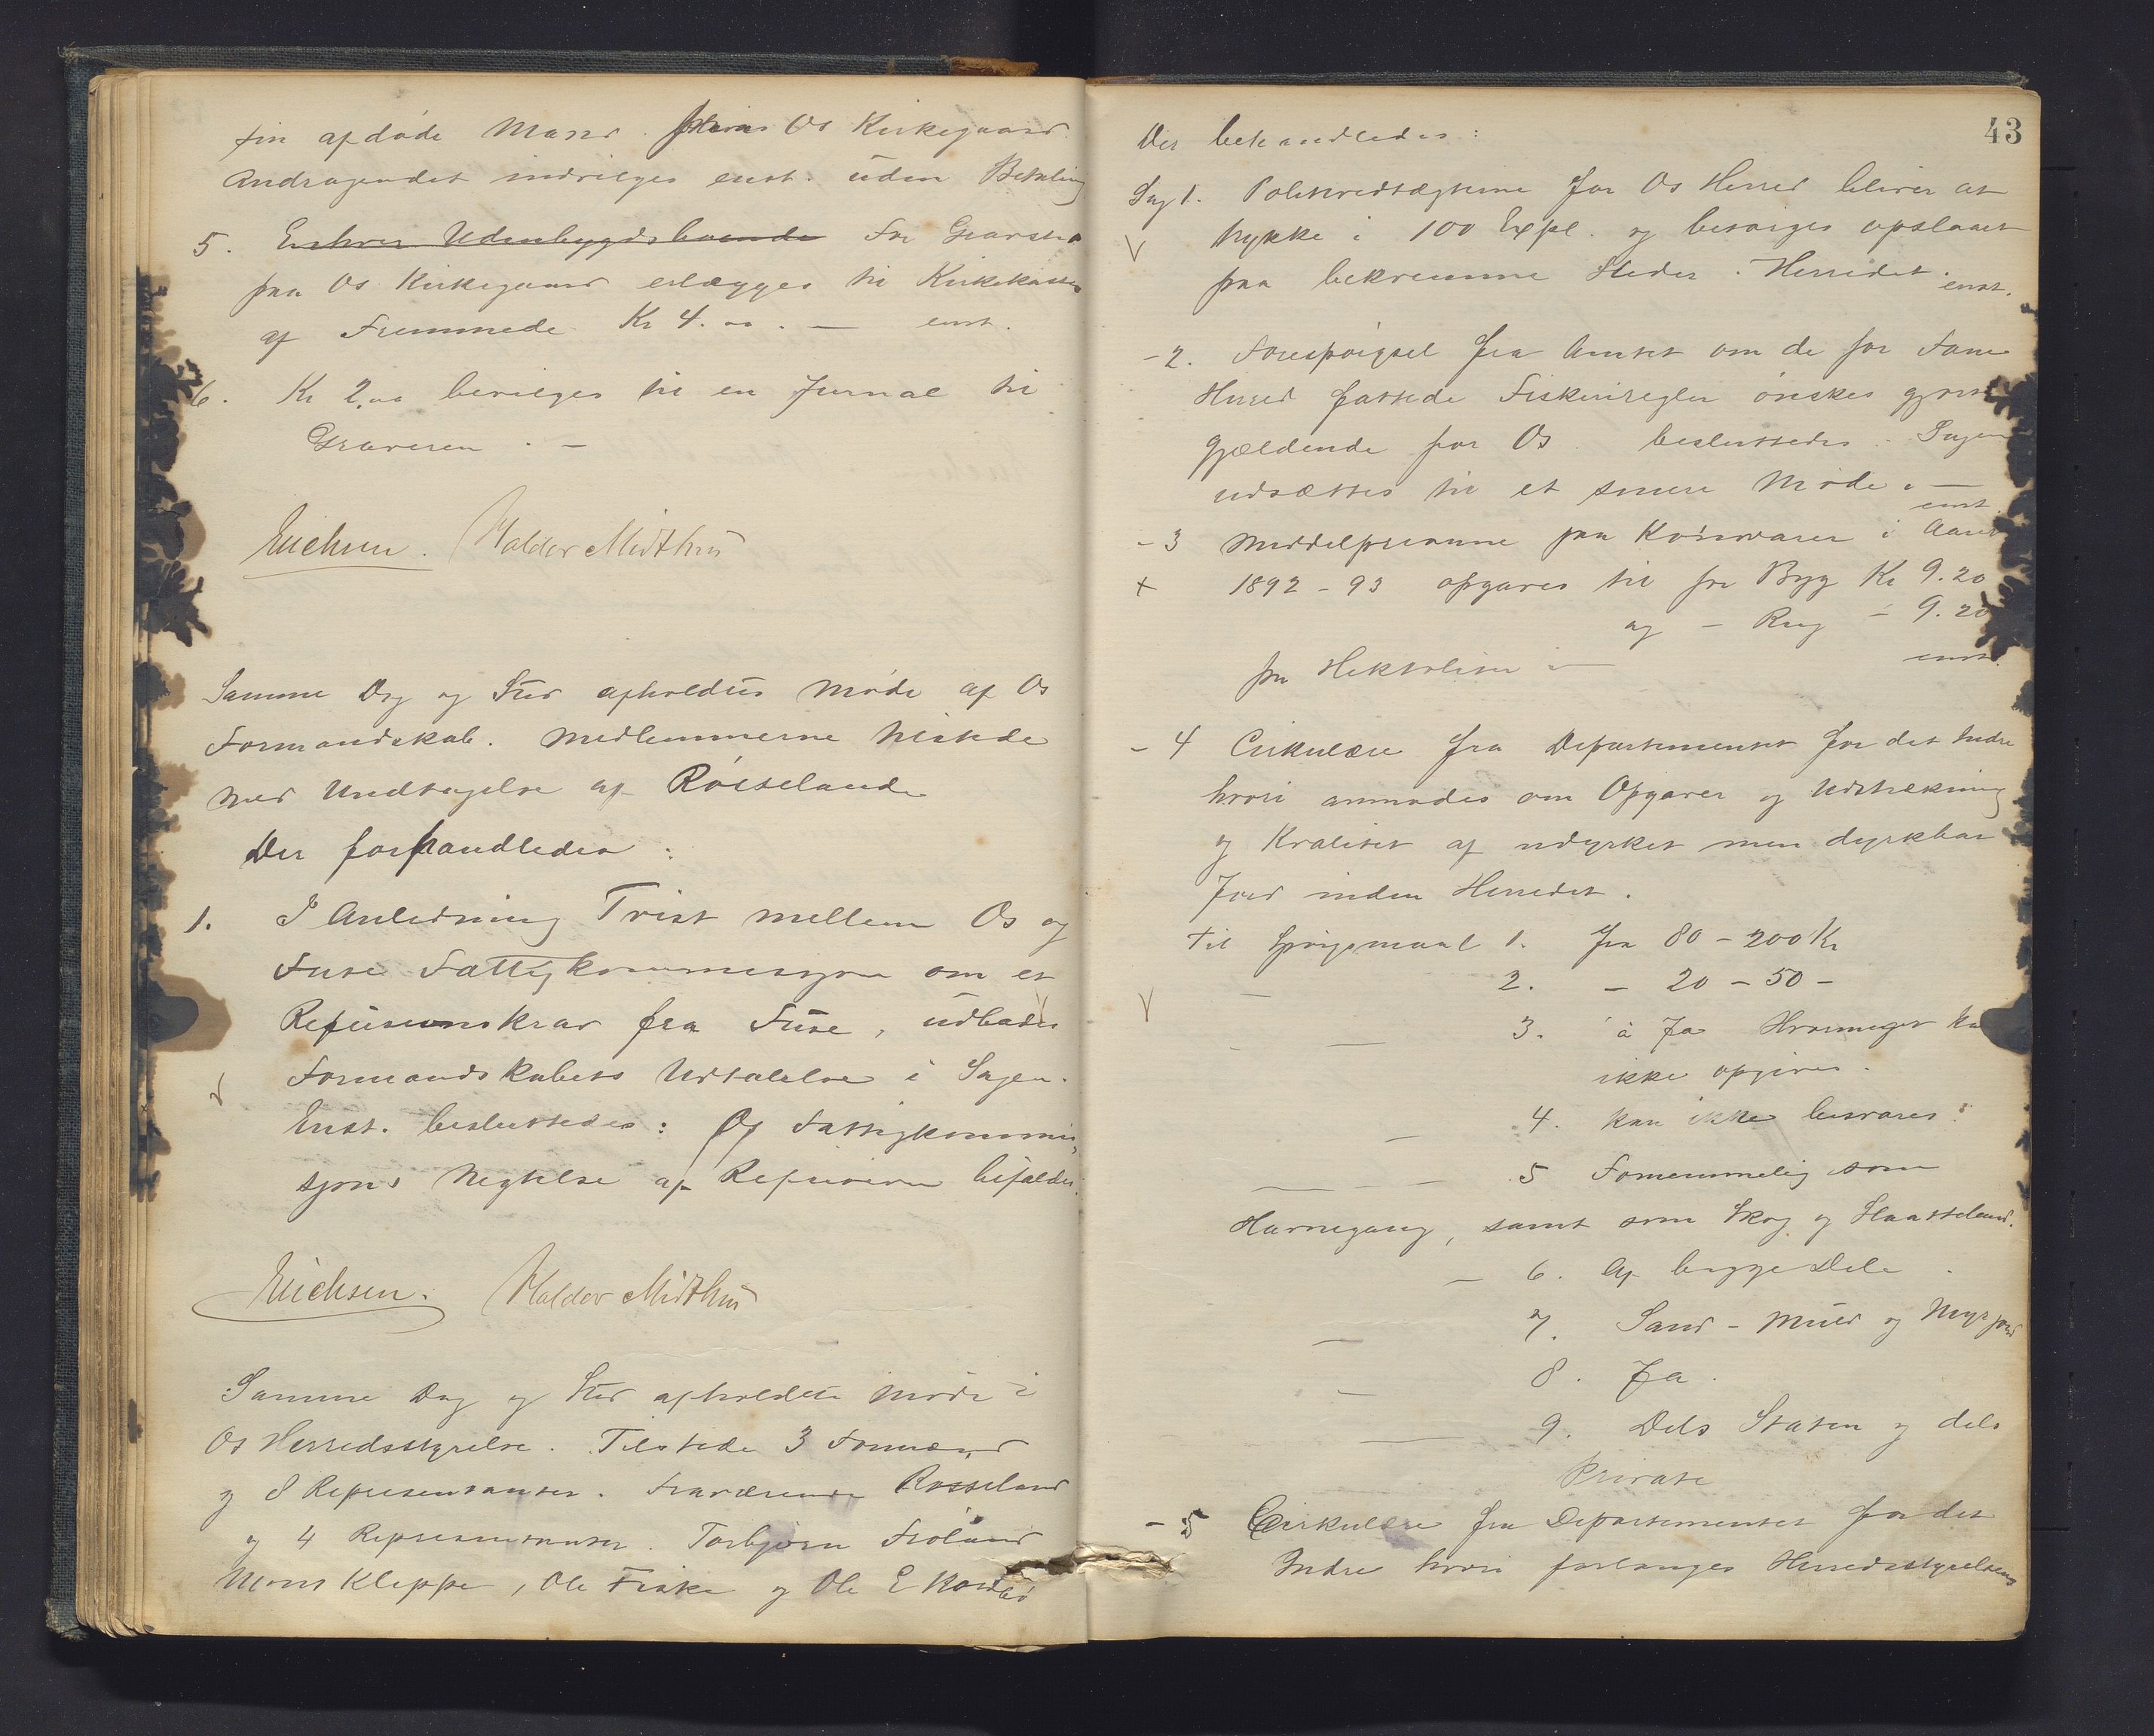 sin afdøde Mand paa Os Kirkegaard
Andragendet indvilges enst. uden Betaling
5. Enhver Udenbygdsboende For Gravsted
paa Os Kirkegaard erlægges til Kirkekassen
af Fremmede Kr 4.00. — enst.
6. Kr 2.00 bevilges til en Jurnal til
Graveren. —
Erichsen. Haldor Midthus
Samme Dag og Sted afholdtes Møde af Os
Formandskab. Medlemmerne tilstede
med Undtagelse af Røsseland
Der forhandledes:
1. I Anledning Tvist mellem Os og
Fuse Fattigkommissjon om et
Refusionskrav fra Fuse, udbades
Formandskabets Udtalelse i Sagen.
Enst. besluttedes: Os Fattigkommis-
sjons Negtelse af Refusionen bifaldes.
Erichsen. Haldor Midthus
Samme Dag og Sted afholdtes Møde i
Os Herredsstyrelse. Tilstede 3 Formænd
og 8 Repræsentanter. Fraværende Røsseland
og 4 Repræsentanter. Torbjørn Frøland
Mons Kleppe, Ole Fiske og Ole E
43
Der behandledes:
Sag 1. Politivedtægterne for Os Herred bliver at
trykke i 100 Expl. og besørges opslaaet
paa bekvemme Steder i Herredet. enst.
- 2. Forespørgsel fra Amtet om de for Fane
Herred fattede Fiskeriregler ønskes gjort
gjældende for Os. besluttedes: Sagen
udsættes til et senere Møde. —
enst.
- 3 Middelpriserne paa Kornvarer i Aaret
1892 - 93 opgaves til for Byg Kr 9.20
og - Rug - 9.20
pr Hektoliter — enst.
- 4 Cirkulære fra Departementet for det Indre
hvori anmodes om Opgaver og Udstrekning
og Kvalitet af udyrket men dyrkbar
Jord inden Herredet.
Til Spørgsmaal 1. fra 80 - 200 Kr
— 2. - 20 - 50 -
- — 3. à Ja Hvormeget kan
ikke opgives.
— 4. kan ikke besvares.
— - - 5 Fornemmelig som
Havnegang, samt som Skog og Slaatteland.
- 6. Af begge Dele.
— 7. Sand - Muld og Myrjord
— 8. Ja.
— 9. Dels Staten og dels
Private
- 5 Cirkulære fra Departementet for det
Indre hvori forlanges Herredsstyrelsens